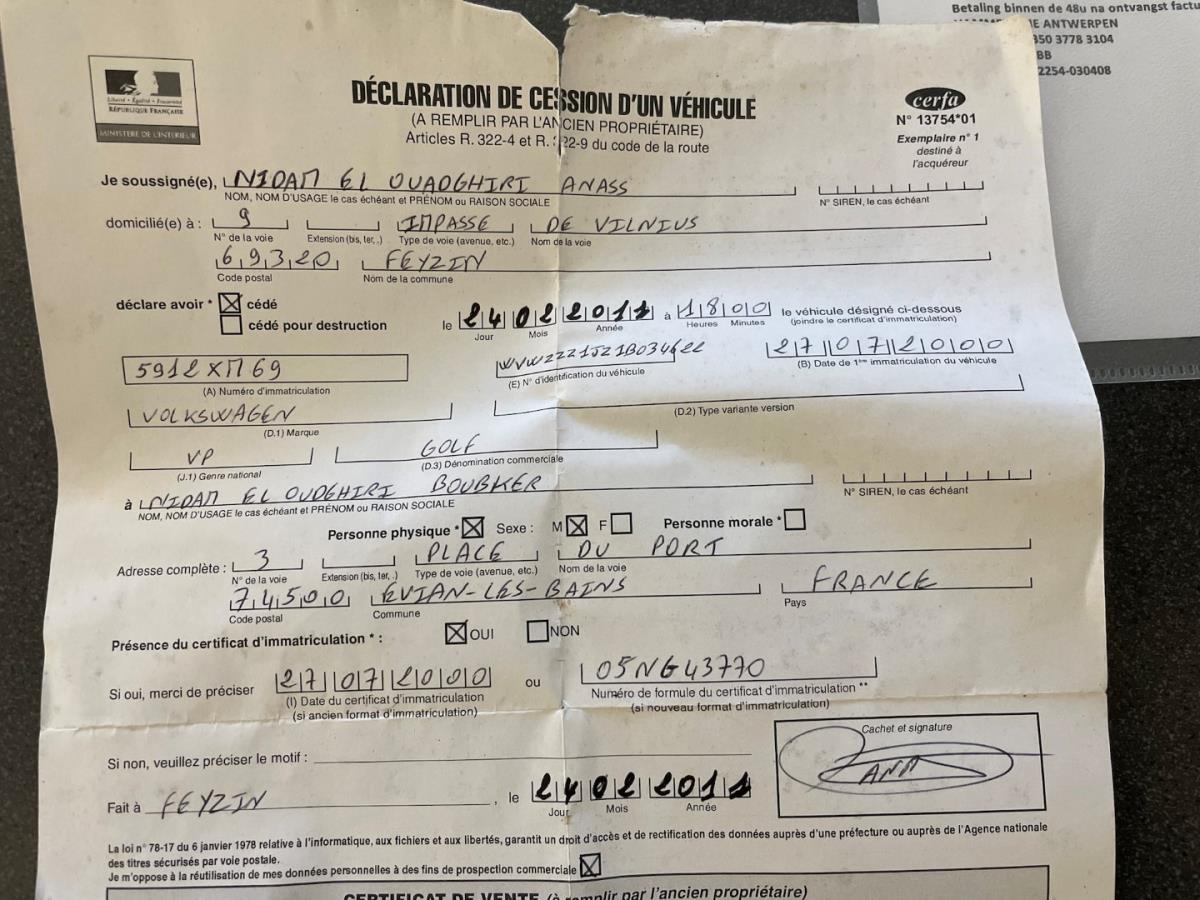 Betaling binnen de 48u na ontvangst factu
ANTWERPEN
350 3778 3104
BB
2254-030408
Liberté • Égalité • Fraternité
RÉPUBLIQUE FRANÇAISE
MINISTÈRE DE L'INTÉRIEUR
DÉCLARATION DE CESSION D'UN VÉHICULE
(A REMPLIR PAR L'ANCIEN PROPRIÉTAIRE)
Articles R. 322-4 et R. 322-9 du code de la route
cerfa
N° 13754*01
Exemplaire n° 1
destiné à
l'acquéreur
Je soussigné(e), NIDAM EL OUADGHIRI ANASS
NOM, NOM D'USAGE le cas échéant et PRÉNOM ou RAISON SOCIALE N° SIREN, le cas échéant
domicilié(e) à : 9 IMPASSE DE VILNIUS
N° de la voie Extension (bis, ter, .) Type de voie (avenue, etc.) Nom de la voie
69320 FEYZIN
Code postal Nom de la commune
déclare avoir * cédé
cédé pour destruction
le 24 02 2011 à 18 00 le véhicule désigné ci-dessous
Jour Mois Année Heures Minutes (joindre le certificat d'immatriculation)
5912XM69 WVWZZZ1JZ1B034622 27 07 2000
(A) Numéro d'immatriculation (E) N° d'identification du véhicule (B) Date de 1ère immatriculation du véhicule
VOLKSWAGEN
(D.1) Marque (D.2) Type variante version
VP GOLF
(J.1) Genre national (D.3) Dénomination commerciale
à NIDAM EL OUDGHIRI BOUBKER
NOM, NOM D'USAGE le cas échéant et PRÉNOM ou RAISON SOCIALE N° SIREN, le cas échéant
Personne physique * Sexe : M F Personne morale *
Adresse complète : 3 PLACE DU PORT
N° de la voie Extension (bis, ter, .) Type de voie (avenue, etc.) Nom de la voie
74500 EVIAN-LES-BAINS FRANCE
Code postal Commune Pays
Présence du certificat d'immatriculation * : OUI NON
Si oui, merci de préciser 27 07 2000 ou 05NG43770
(I) Date du certificat d'immatriculation Numéro de formule du certificat d'immatriculation **
(si ancien format d'immatriculation) (si nouveau format d'immatriculation)
Si non, veuillez préciser le motif :
Cachet et signature
ANA
Fait à FEYZIN, le 24 02 2011
Jour Mois Année
La loi n° 78-17 du 6 janvier 1978 relative à l'informatique, aux fichiers et aux libertés, garantit un droit d'accès et de rectification des données auprès d'une préfecture ou auprès de l'Agence nationale
des titres sécurisés par voie postale.
Je m'oppose à la réutilisation de mes données personnelles à des fins de prospection commerciale
CERTIFICAT DE VENTE (à remplir par l'ancien propriétaire)